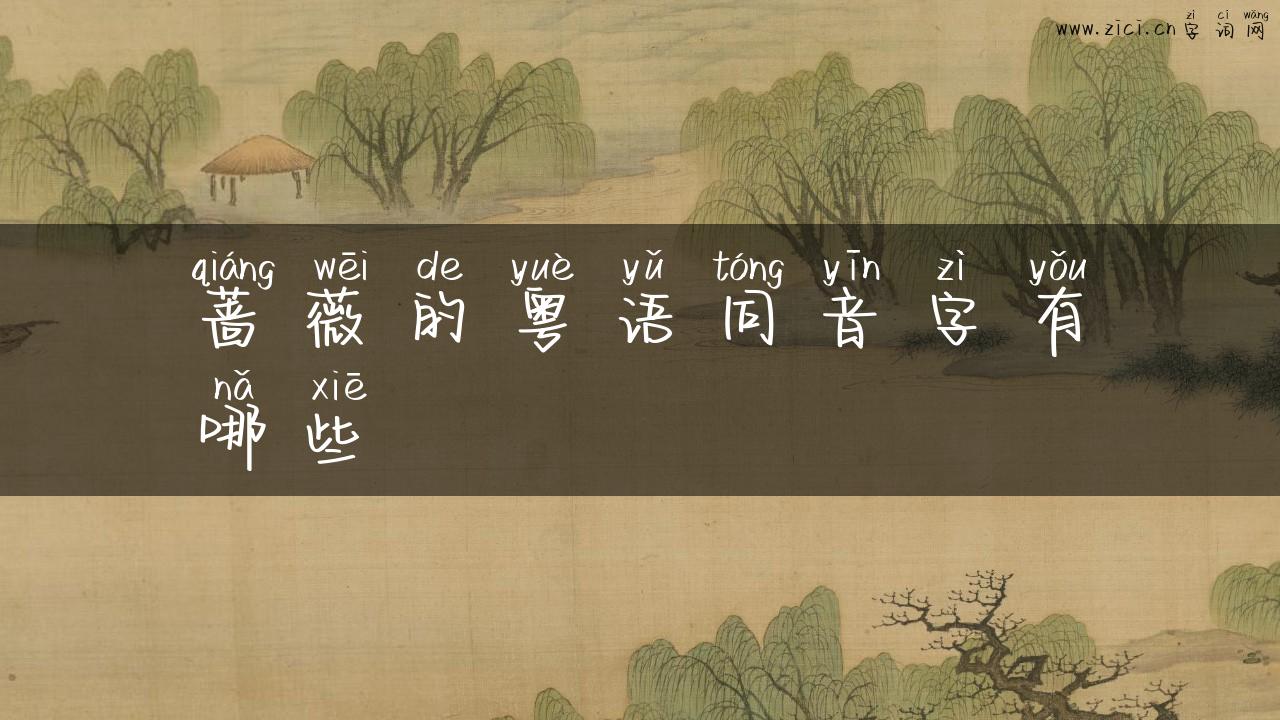 zì cí wǎng
www.zici.cn字词网
qiáng wēi de yuè yǔ tóng yīn zì yǒu
蔷薇的粤语同音字有
nǎ xiē
哪些